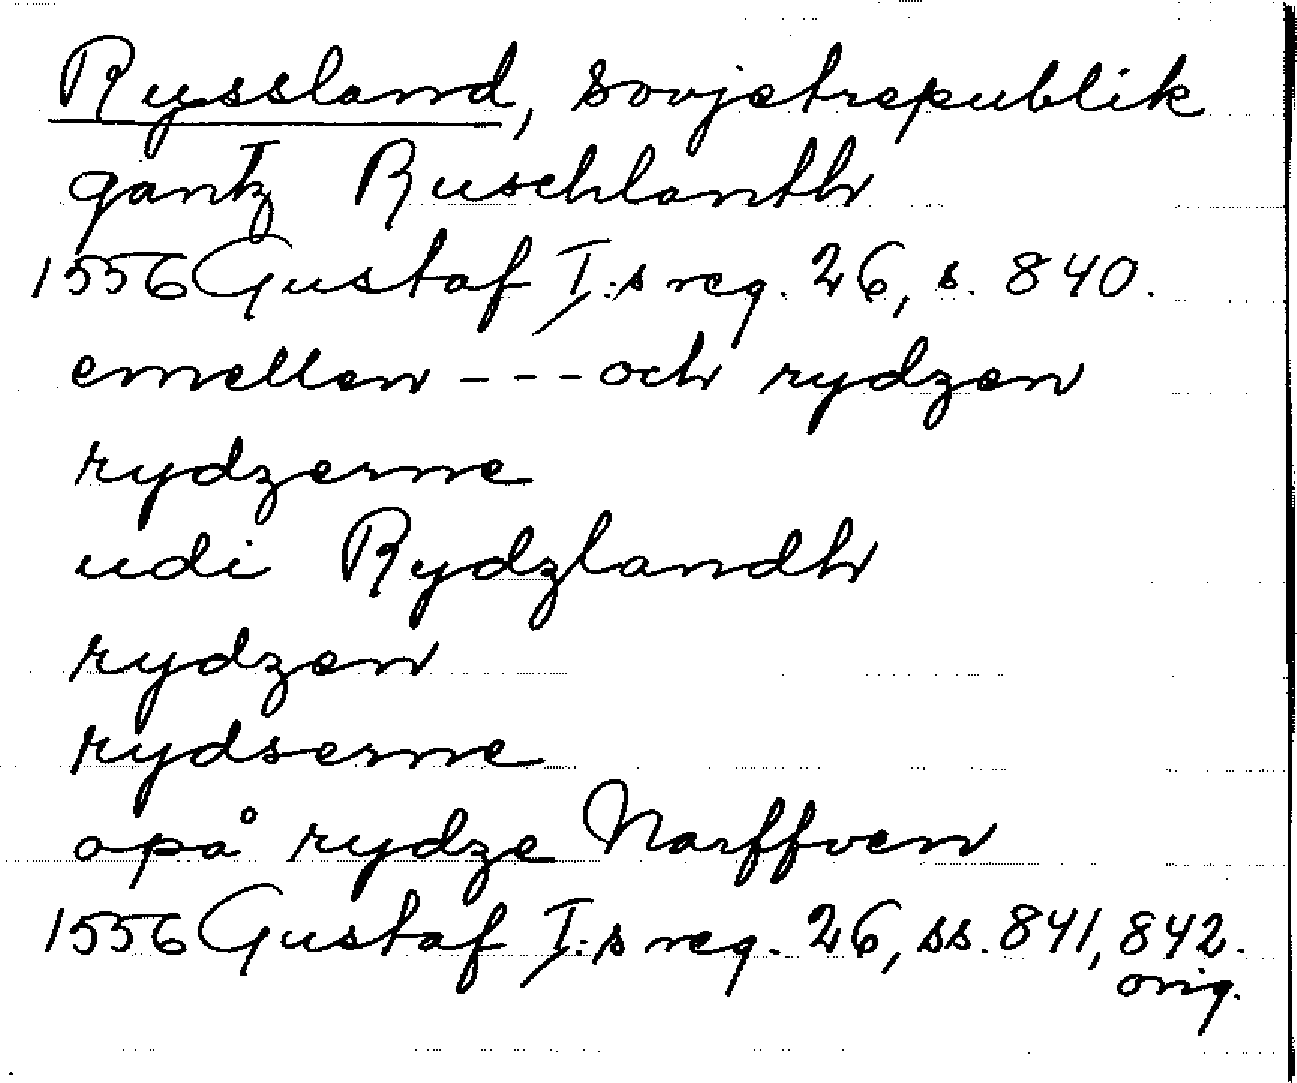 Ryssland, sovjetrepublik
gantz Ruschlanth
1556 Gustaf I:s reg. 26, s. 840.
emellen --- och rydzen
rydzerne
udi Rydzlandh
rydzen
rydserne
opå rydze Narffven
1556 Gustaf I:s reg. 26, ss. 841, 842.
orig.